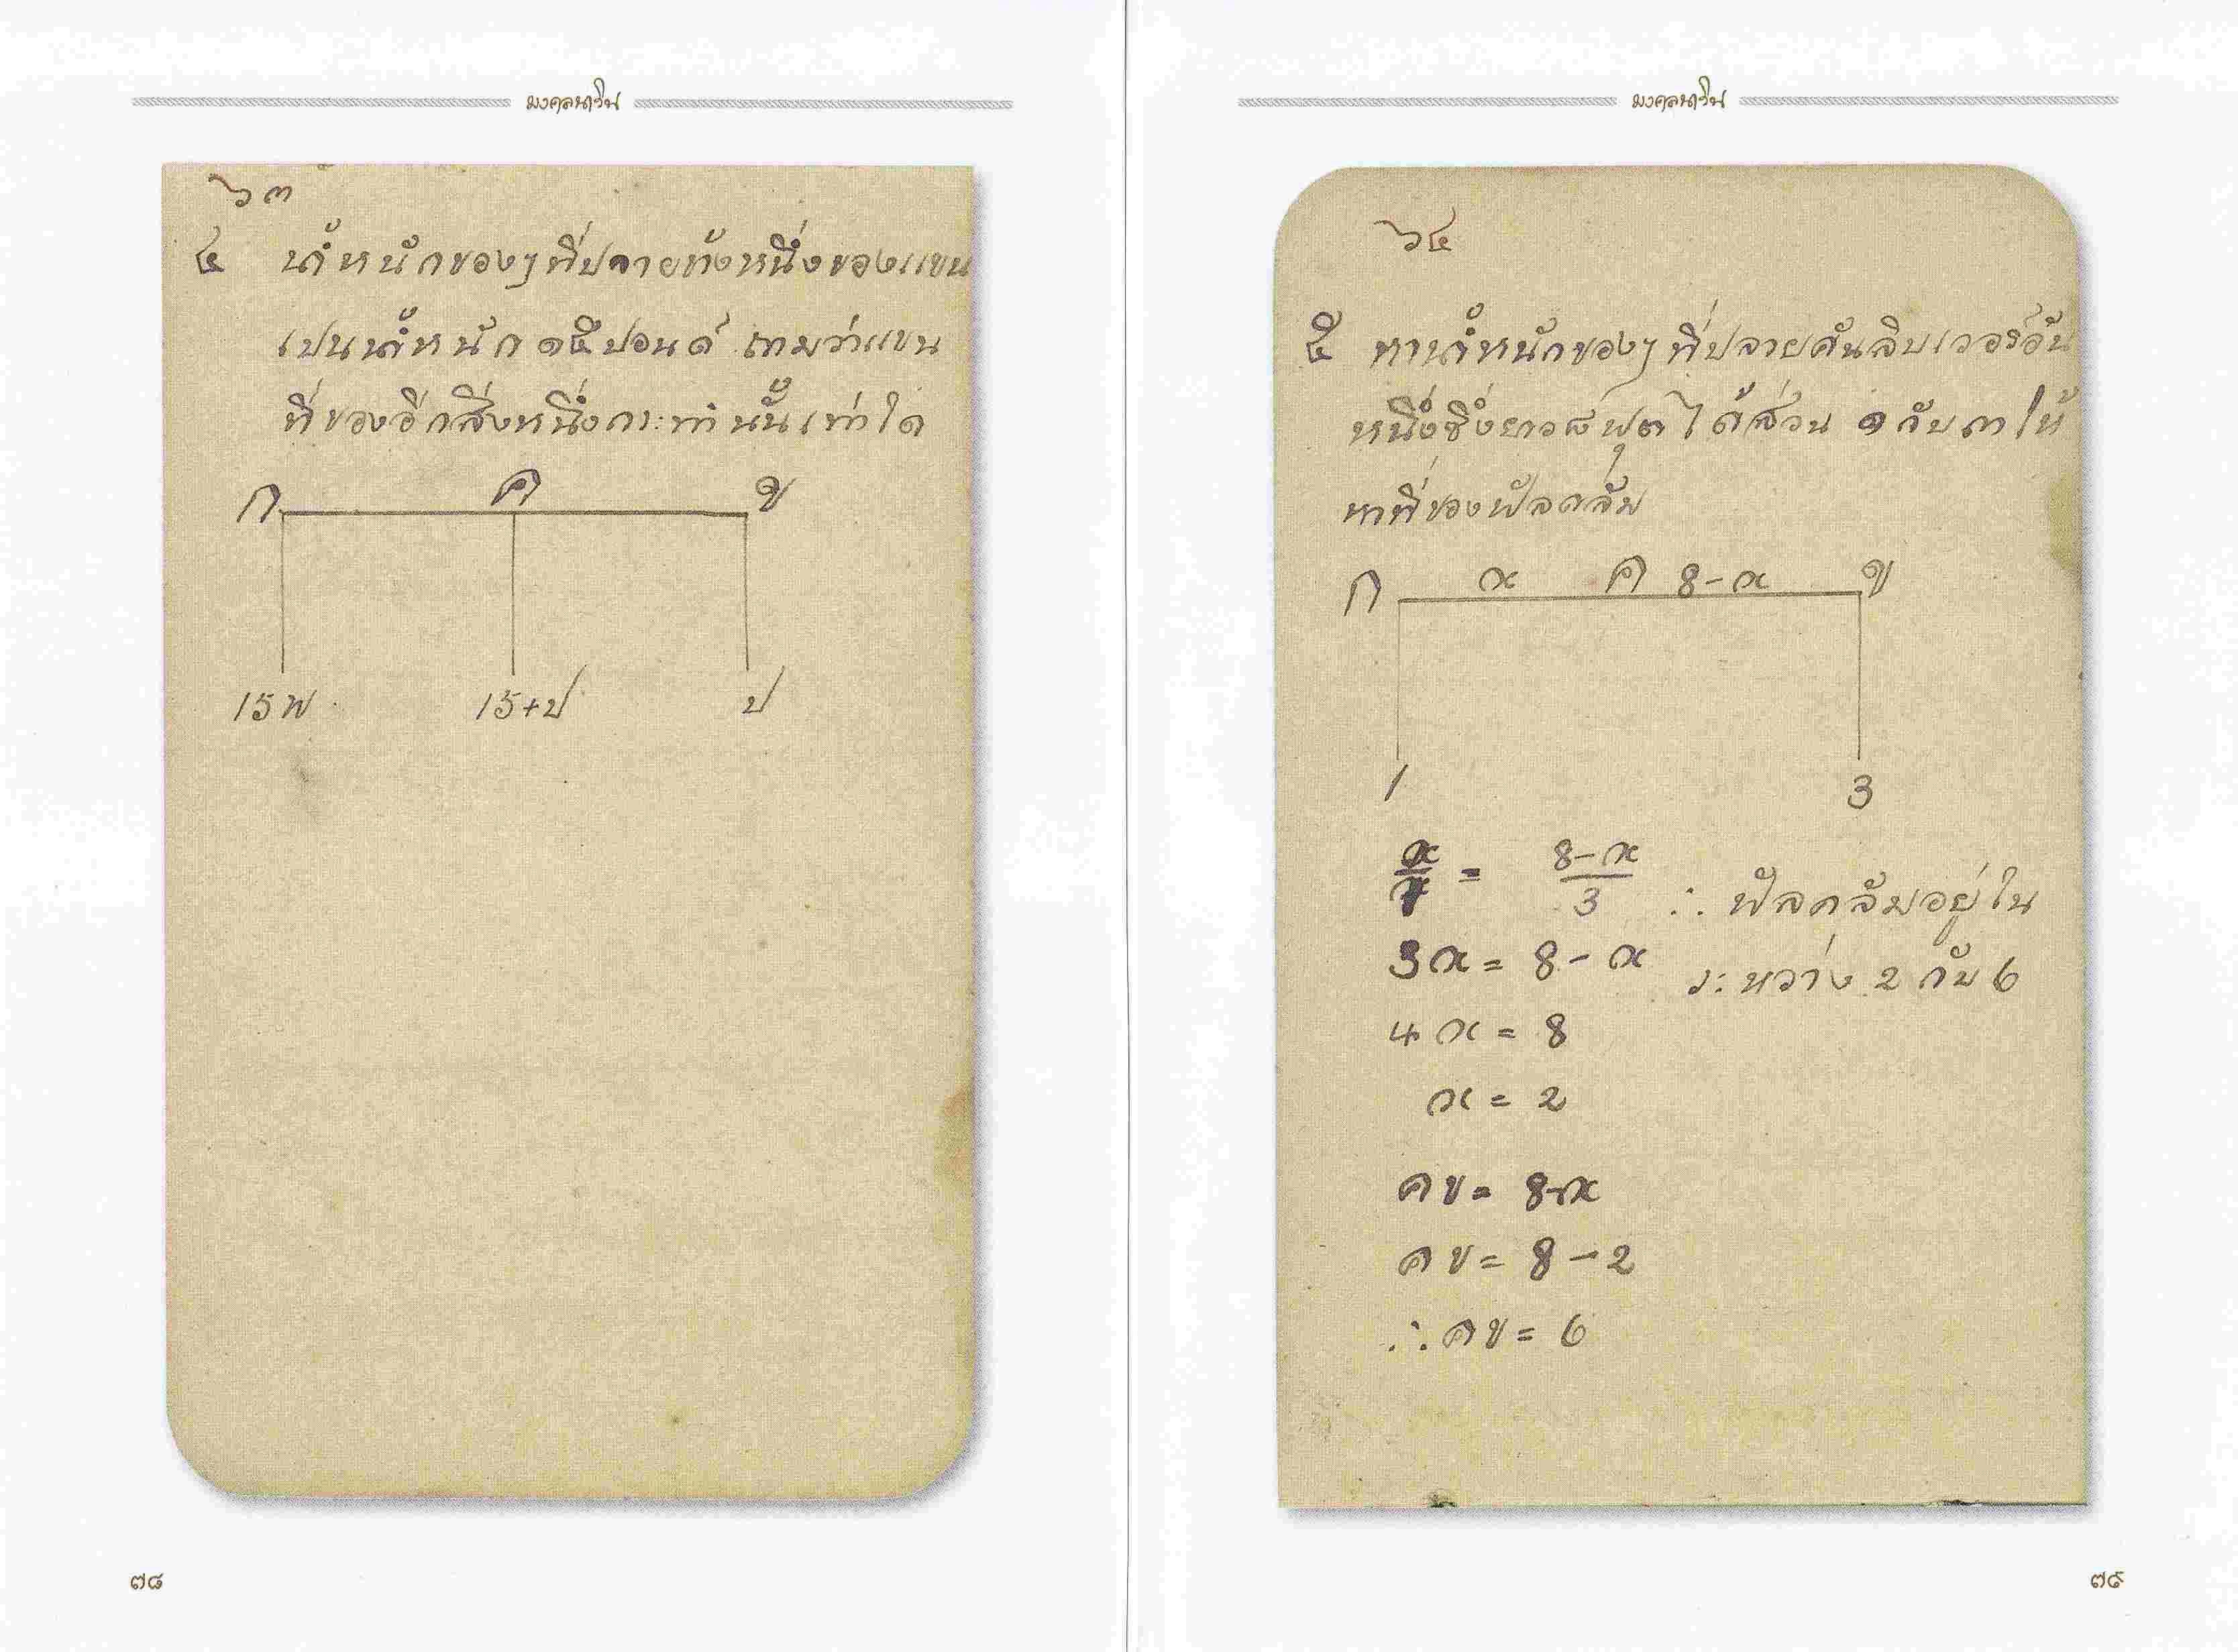 มงคลนาวิน
๖๓
๔ น้ำหนักของๆที่ปลายข้างหนึ่งของแขน
เปนน้ำหนัก ๑๕ ปอนด์ ถามว่าแขน
ที่ของอีกสิ่งหนึ่งกระทำนั้นเท่าใด
ก ค ข
15 พ 15+ป ป
๗๘
มงคลนาวิน
๖๔
๕ หาน้ำหนักของๆ ที่ปลายคันลิบเวอร์อัน
หนึ่งซึ่งยาว ๘ ฟุต ได้ส่วน ๑ กับ ๓ ให้
หาที่ของฟัลคลัม
ก x ค 8-x ข
1 3
x/1 = 8-x/3 ∴ ฟัลคลัมอยู่ใน
3x = 8-x ระหว่าง 2 กับ 6
4x = 8
x = 2
คข = 8-x
คข = 8-2
∴ คข = 6
๗๙